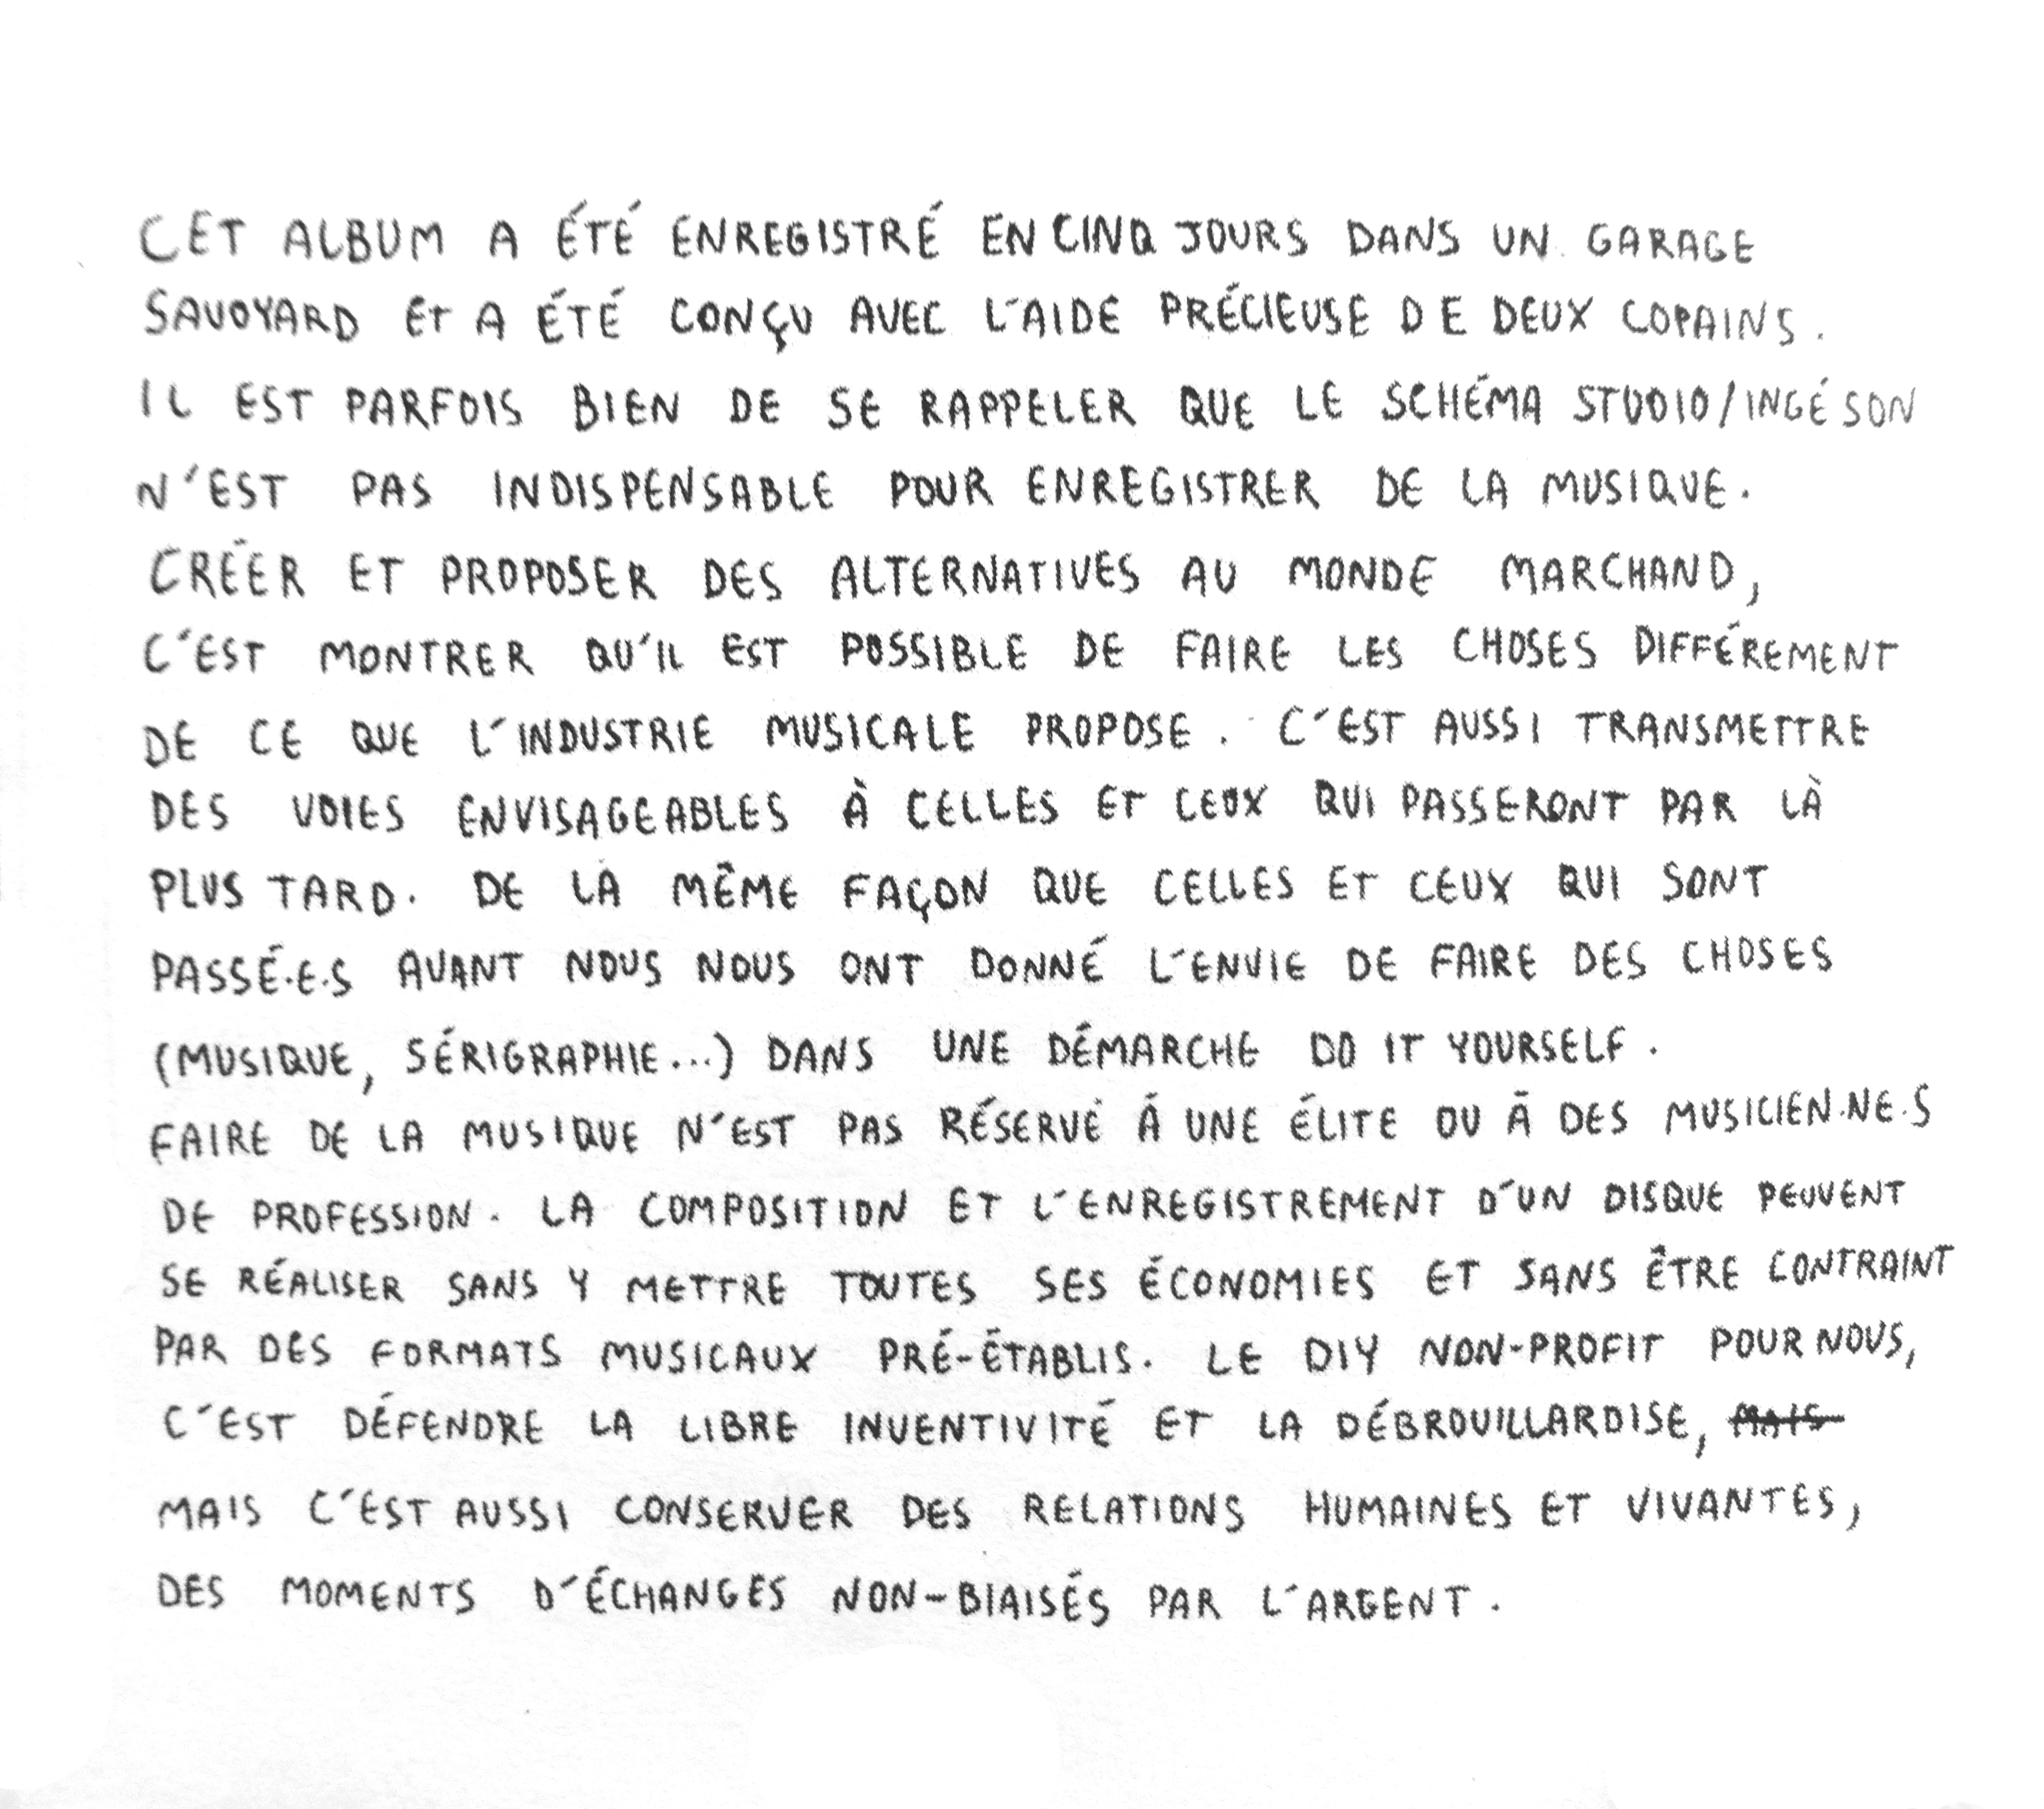 CET ALBUM A ÉTÉ ENREGISTRÉ EN CINQ JOURS DANS UN GARAGE
SAVOYARD ET A ÉTÉ CONÇU AVEC L'AIDE PRÉCIEUSE DE DEUX COPAINS.
IL EST PARFOIS BIEN DE SE RAPPELER QUE LE SCHÉMA STUDIO/INGÉ SON
N'EST PAS INDISPENSABLE POUR ENREGISTRER DE LA MUSIQUE.
CRÉER ET PROPOSER DES ALTERNATIVES AU MONDE MARCHAND,
C'EST MONTRER QU'IL EST POSSIBLE DE FAIRE LES CHOSES DIFFÉREMENT
DE CE QUE L'INDUSTRIE MUSICALE PROPOSE. C'EST AUSSI TRANSMETTRE
DES VOIES ENVISAGEABLES À CELLES ET CEUX QUI PASSERONT PAR LÀ
PLUS TARD. DE LA MÊME FAÇON QUE CELLES ET CEUX QUI SONT
PASSÉ·E·S AVANT NOUS NOUS ONT DONNÉ L'ENVIE DE FAIRE DES CHOSES
(MUSIQUE, SÉRIGRAPHIE...) DANS UNE DÉMARCHE DO IT YOURSELF.
FAIRE DE LA MUSIQUE N'EST PAS RÉSERVÉ À UNE ÉLITE OU À DES MUSICIEN·NE·S
DE PROFESSION. LA COMPOSITION ET L'ENREGISTREMENT D'UN DISQUE PEUVENT
SE RÉALISER SANS Y METTRE TOUTES SES ÉCONOMIES ET SANS ÊTRE CONTRAINT
PAR DES FORMATS MUSICAUX PRÉ-ÉTABLIS. LE DIY NON-PROFIT POUR NOUS,
C'EST DÉFENDRE LA LIBRE INVENTIVITÉ ET LA DÉBROUILLARDISE, MAIS
MAIS C'EST AUSSI CONSERVER DES RELATIONS HUMAINES ET VIVANTES,
DES MOMENTS D'ÉCHANGES NON-BIAISÉS PAR L'ARGENT.